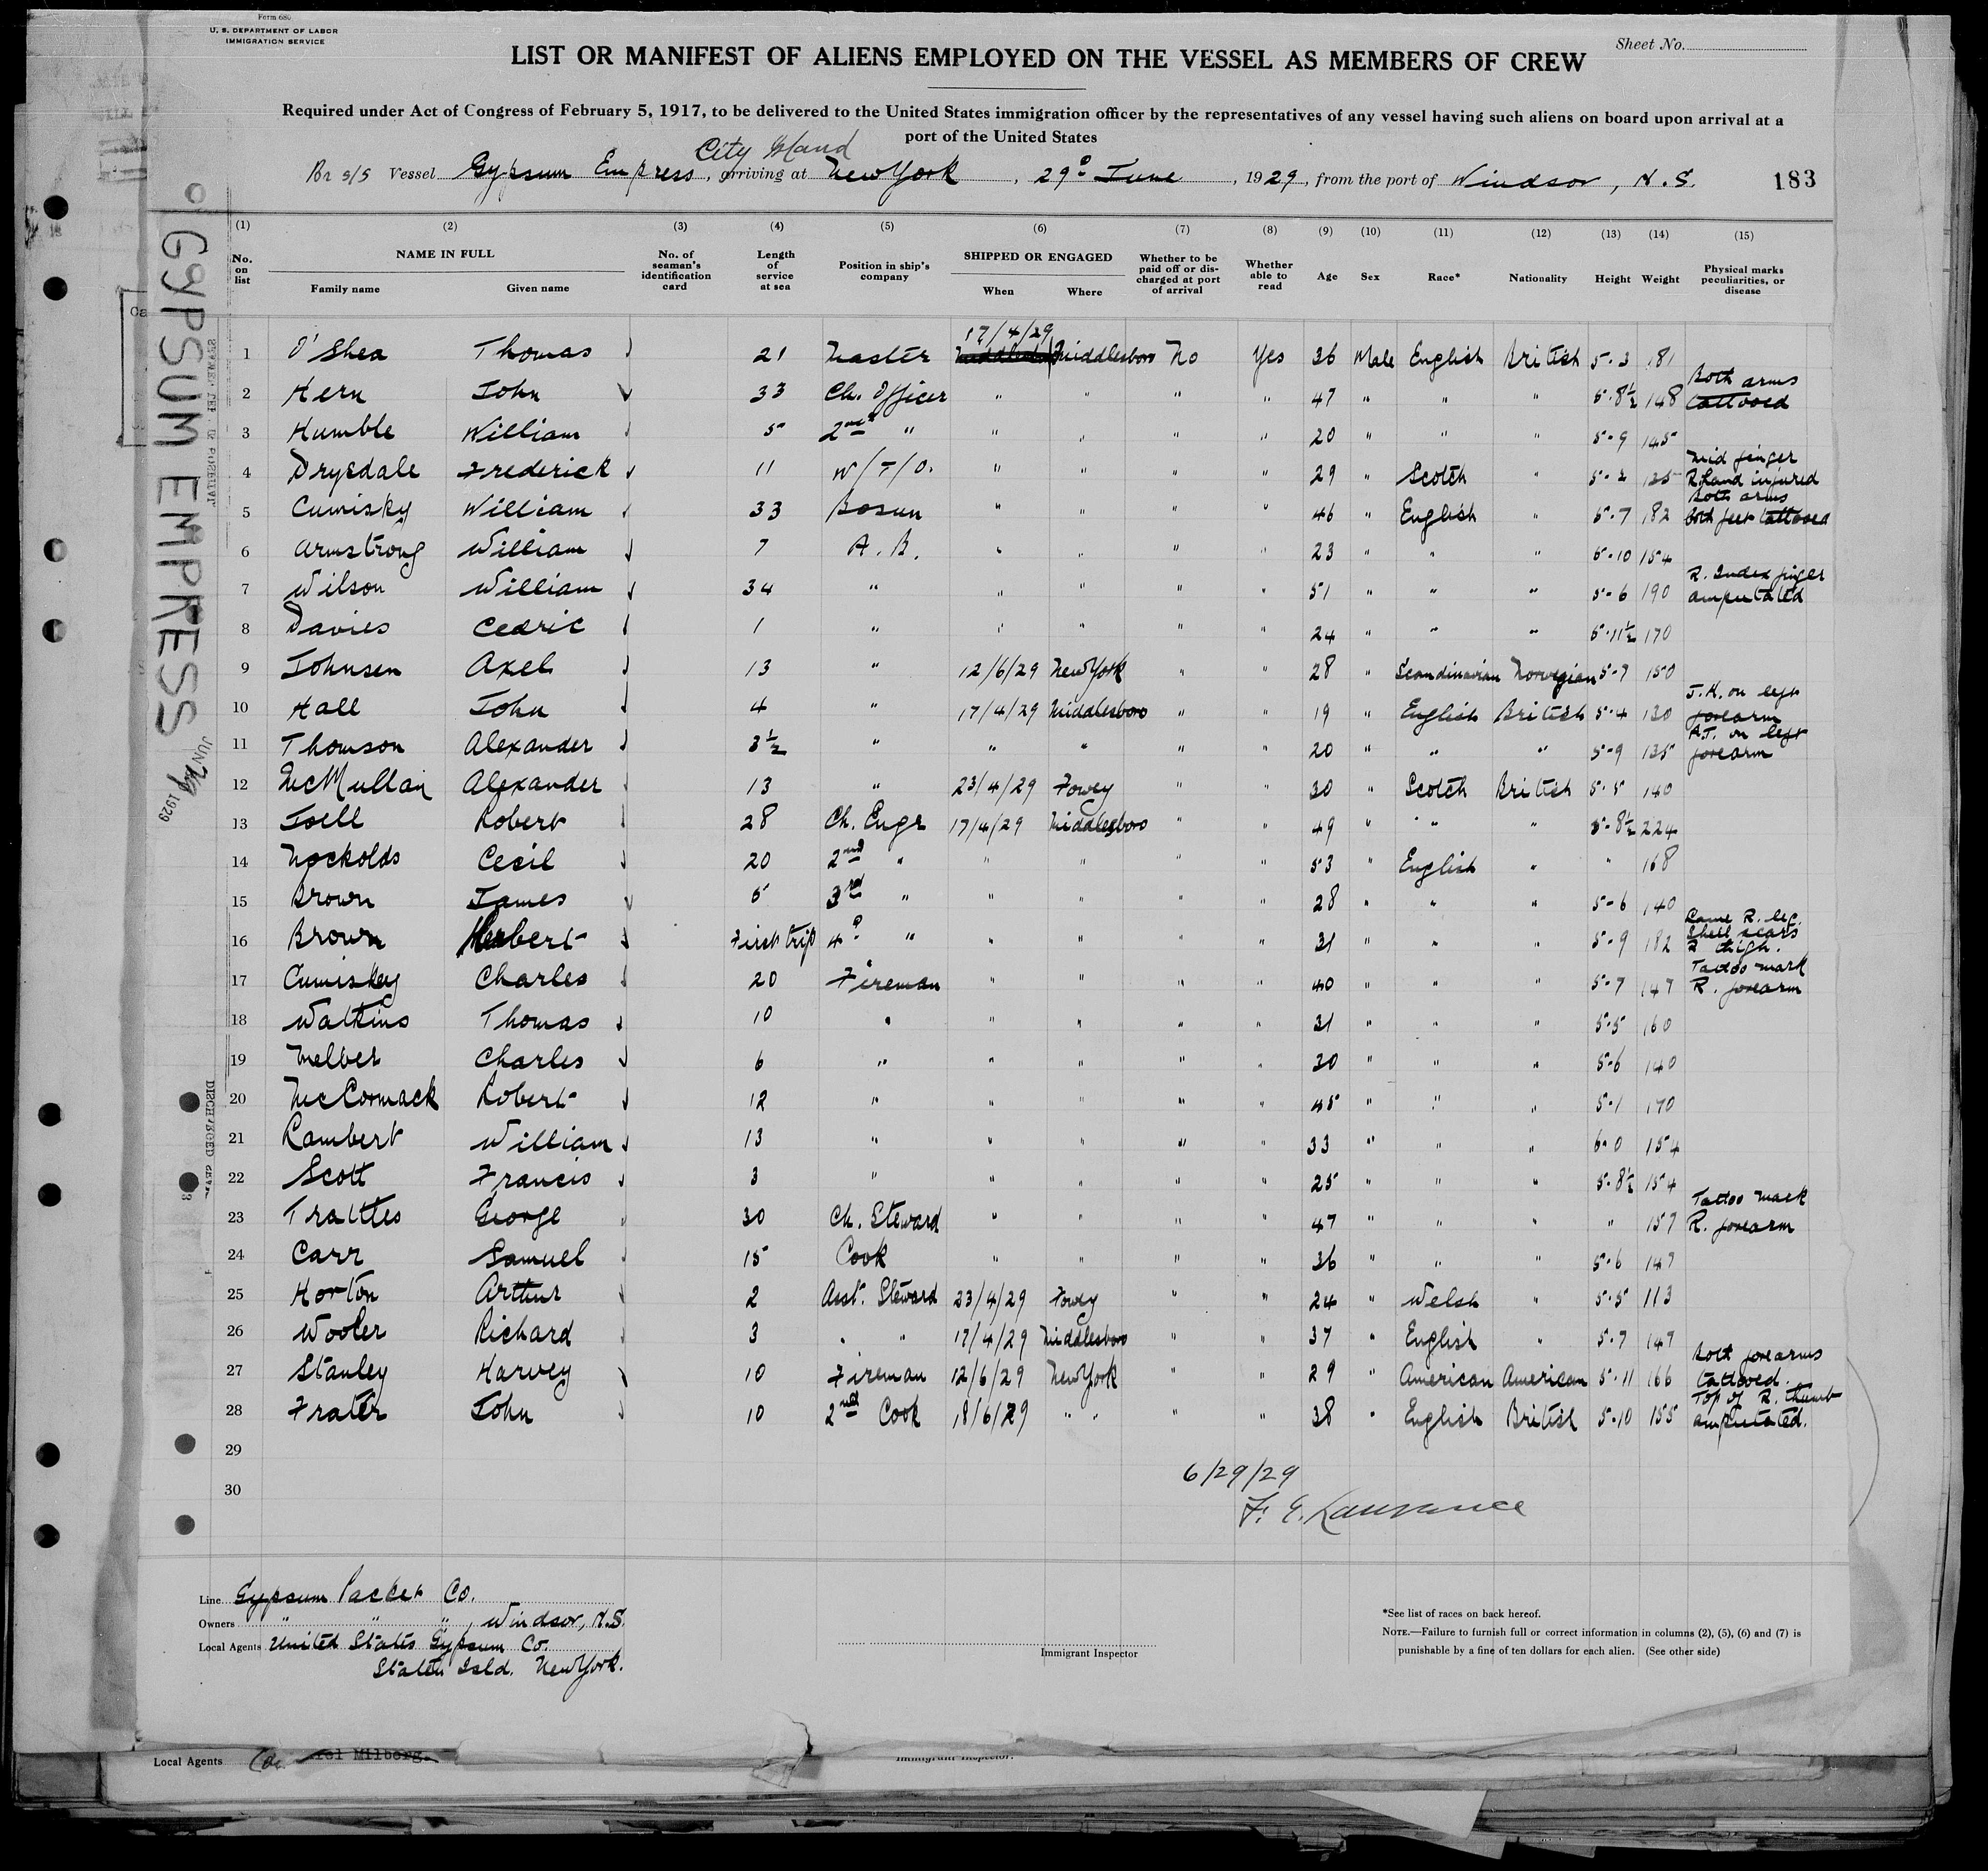 Form 680
U. S. DEPARTMENT OF LABOR
IMMIGRATION SERVICE
Sheet No.
LIST OR MANIFEST OF ALIENS EMPLOYED ON THE VESSEL AS MEMBERS OF CREW
Required under Act of Congress of February 5, 1917, to be delivered to the United States immigration officer by the representatives of any vessel having such aliens on board upon arrival at a
port of the United States
City Island
Br s/s Vessel Gypsum Empress, arriving at New York, 29th June, 1929, from the port of Windsor, N.S. 183
GYPSUM EMPRESS
JUN 1929
(1) (2) (3) (4) (5) (6) (7) (8) (9) (10) (11) (12) (13) (14) (15)
No. on list NAME IN FULL Family name Given name No. of seaman's identification card Length of service at sea Position in ship's company SHIPPED OR ENGAGED When Where Whether to be paid off or discharged at port of arrival Whether able to read Age Sex Race* Nationality Height Weight Physical marks peculiarities, or disease
1 O'Shea Thomas 21 Master 17/4/29 Middlesboro No Yes 36 Male English British 5-3 181
2 Hern John 33 Ch. Officer " " " " 47 " " " 5-8½ 148 Both arms tattooed
3 Humble William 5 2nd " " " " " 20 " " " 5-9 145
4 Drysdale Frederick 11 W/T/O. " " " " 29 " Scotch " 5-2 125 Mid finger R hand injured
5 Cumisky William 33 Bosun " " " " 46 " English " 5-7 182 Both arms Both feet tattooed
6 Armstrong William 7 A.B. " " " " 23 " " " 5-10 154
7 Wilson William 34 " " " " " 51 " " " 5-6 190 R. Index finger amputated
8 Davies Cedric 1 " " " " " 24 " " " 5-11½ 170
9 Johnsen Axel 13 " 12/6/29 New York " " 28 " Scandinavian Norwegian 5-7 150
10 Hall John 4 " 17/4/29 Middlesboro " " 19 " English British 5-4 130 J.H. on left forearm
11 Thomson Alexander 3½ " " " " " 20 " " " 5-9 135 A.T. on left forearm
12 McMullan Alexander 13 " 23/4/29 Fowey " " 30 " Scotch British 5-5 140
13 Joell Robert 28 Ch. Engr 17/4/29 Middlesboro " " 49 " " " 5-8½ 224
14 Nockolds Cecil 20 2nd " " " " " 53 " English " " 168
15 Brown James 5 3rd " " " " " 28 " " " 5-6 140
16 Brown Herbert First trip 4th " " " " " 31 " " " 5-9 182 Lame R. leg. Shell scars R thigh.
17 Cumiskey Charles 20 Fireman " " " " 40 " " " 5-7 147 Tattoo mark R. forearm
18 Watkins Thomas 10 " " " " " 31 " " " 5-5 160
19 Melber Charles 6 " " " " " 30 " " " 5-6 140
20 McCormack Robert 12 " " " " " 45 " " " 5-1 170
21 Lambert William 13 " " " " " 33 " " " 6-0 154
22 Scott Francis 3 " " " " " 25 " " " 5-8½ 154
23 Trattles George 30 Ch. Steward " " " " 47 " " " " 157 Tattoo mark R. forearm
24 Carr Samuel 15 Cook " " " " 36 " " " 5-6 147
25 Horton Arthur 2 Asst. Steward 23/4/29 Fowey " " 24 " Welsh " 5-5 113
26 Wooler Richard 3 " " 17/4/29 Middlesboro " " 37 " English " 5-7 147
27 Stanley Harvey 10 Fireman 12/6/29 New York " " 29 " American American 5-11 166 Both forearms tattooed.
28 Frater John 10 2nd Cook 18/6/29 " " " " 38 " English British 5-10 155 Top of R. thumb amputated.
29
30
6/29/29
F. E. Lawrence
Line Gypsum Packet Co.
Owners " " ", Windsor, N.S.
Local Agents United States Gypsum Co.
Staten Isld. New York.
Immigrant Inspector
*See list of races on back hereof.
NOTE.—Failure to furnish full or correct information in columns (2), (5), (6) and (7) is
punishable by a fine of ten dollars for each alien. (See other side)
Local Agents Milberg.
Immigrant Inspector.